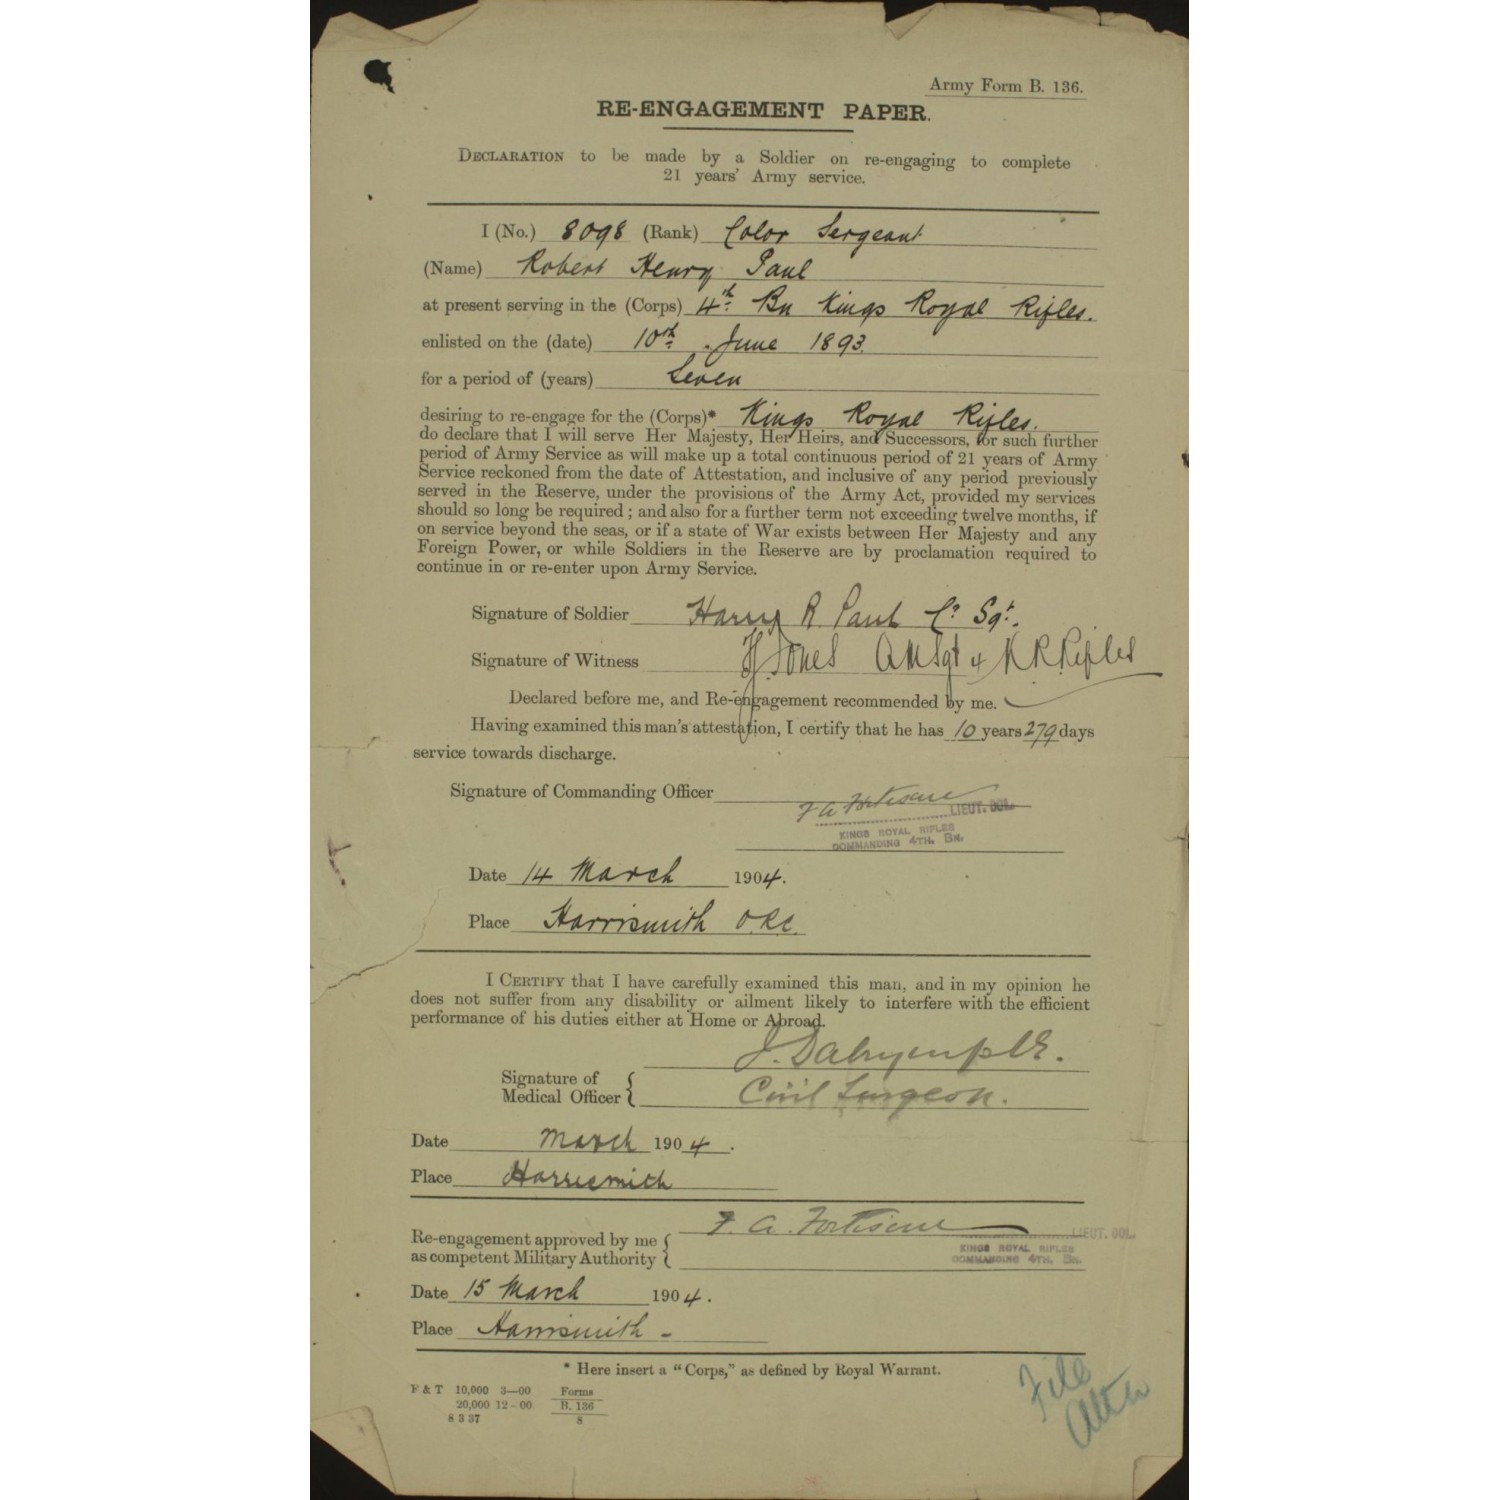 Army Form B. 136.
RE-ENGAGEMENT PAPER.
DECLARATION to be made by a Soldier on re-engaging to complete
21 years' Army service.
I (No.) 8098 (Rank) Color Sergeant
(Name) Robert Henry Paul
at present serving in the (Corps) 4th Bn Kings Royal Rifles.
enlisted on the (date) 10th June 1893
for a period of (years) Seven
desiring to re-engage for the (Corps)* Kings Royal Rifles.
do declare that I will serve Her Majesty, Her Heirs, and Successors, for such further
period of Army Service as will make up a total continuous period of 21 years of Army
Service reckoned from the date of Attestation, and inclusive of any period previously
served in the Reserve, under the provisions of the Army Act, provided my services
should so long be required; and also for a further term not exceeding twelve months, if
on service beyond the seas, or if a state of War exists between Her Majesty and any
Foreign Power, or while Soldiers in the Reserve are by proclamation required to
continue in or re-enter upon Army Service.
Signature of Soldier Harry R. Paul Cr Sgt.
Signature of Witness Jones QMSgt 4 K.R.Rifles
Declared before me, and Re-engagement recommended by me.
Having examined this man's attestation, I certify that he has 10 years 279 days
service towards discharge.
Signature of Commanding Officer F A Fortescue LIEUT. COL.
KINGS ROYAL RIFLES
COMMANDING 4TH. BN.
Date 14 March 1904.
Place Harrismith O.R.C.
I CERTIFY that I have carefully examined this man, and in my opinion he
does not suffer from any disability or ailment likely to interfere with the efficient
performance of his duties either at Home or Abroad.
J. Dalrymple.
Signature of
Medical Officer Civil Surgeon.
Date March 1904.
Place Harrismith
F. A. Fortescue LIEUT. COL.
Re-engagement approved by me
as competent Military Authority
KINGS ROYAL RIFLES
COMMANDING 4TH. BN.
Date 15 March 1904.
Place Harrismith -
* Here insert a "Corps," as defined by Royal Warrant.
F & T 10,000 3—00 Forms
20,000 12-00 B. 136
8 3 37 8
File